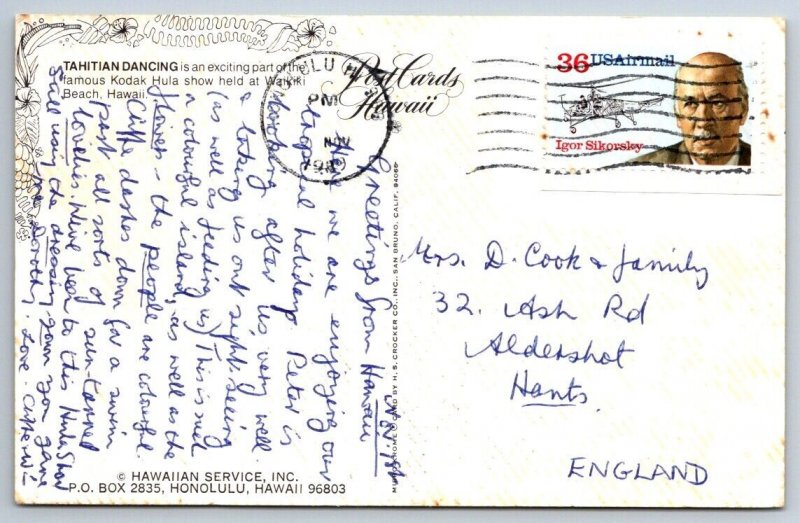 TAHITIAN DANCING is an exciting part of the
famous Kodak Hula show held at Waikiki
Beach, Hawaii.
Post Cards
Hawaii
PM
36 USAirmail
Igor Sikorsky
Greetings from Hawaii
we are enjoying our
holiday. Peter is
looking after us very well
& taking us out sight-seeing
(as well as feeding us) This is such
a colourful island, as well as the
flowers - the people are colourful.
Cliffe dashes down for a swim
past all sorts of sun-tanned
lovelies. We've been to this Hula Show
Still using the dressing gown you gave
me Dorothy. Love - Cliffe
Mrs. D. Cook & family
32, Ash Rd
Aldershot
Hants.
ENGLAND
BY H. S. CROCKER CO., INC., SAN BRUNO, CALIF. 94066
© HAWAIIAN SERVICE, INC.
P.O. BOX 2835, HONOLULU, HAWAII 96803